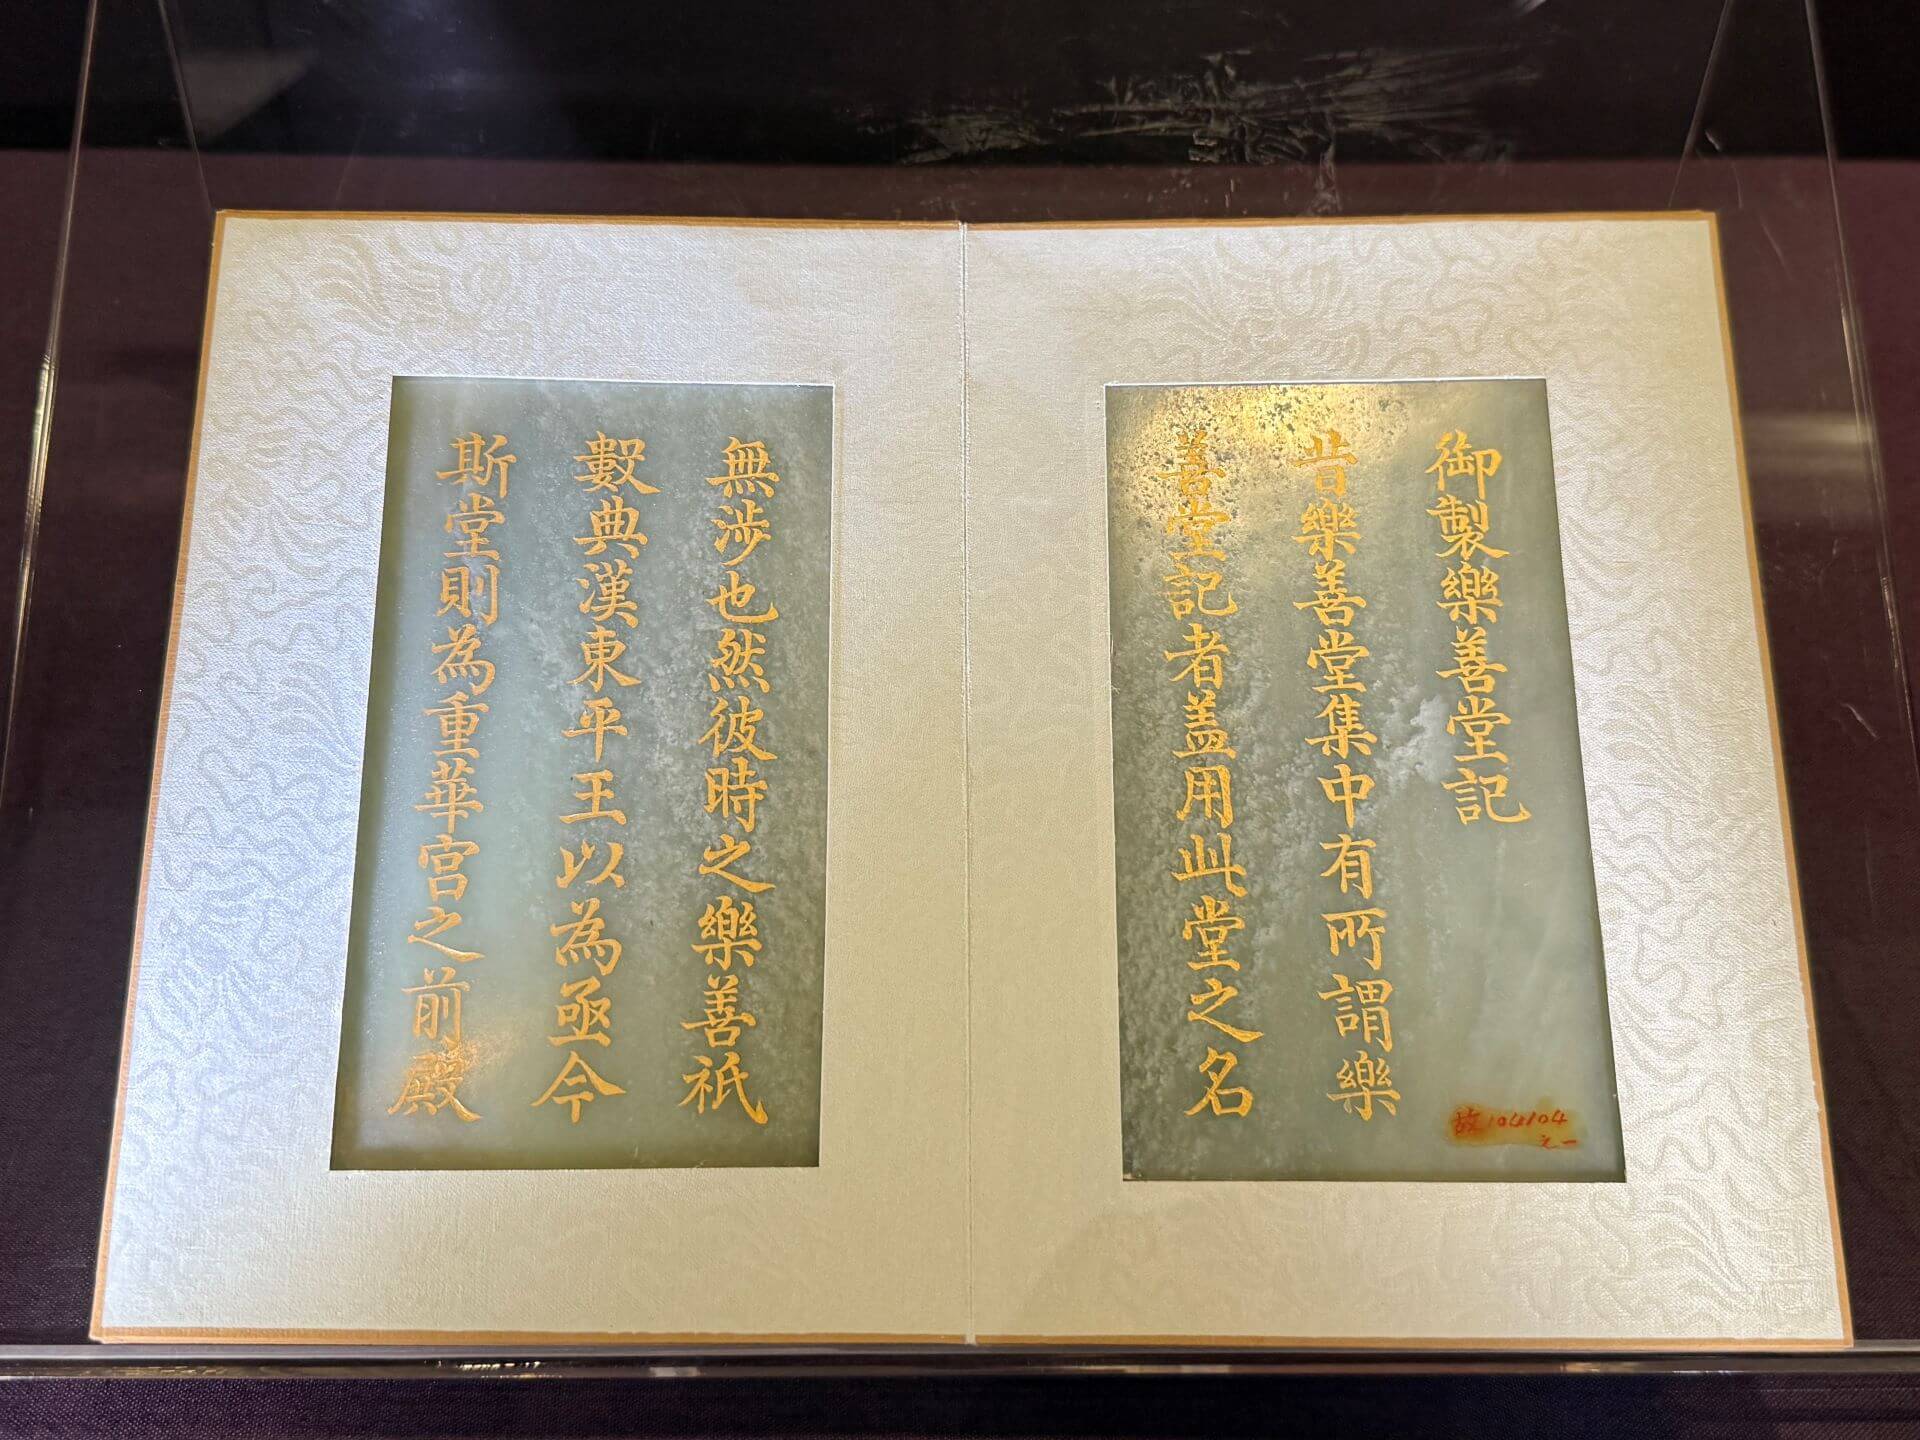 御製樂善堂記
昔樂善堂集中有所謂樂
善堂記者盖用此堂之名
故104104
之一
無涉也然彼時之樂善祇
數典漢東平王以為亟今
斯堂則為重華宮之前殿